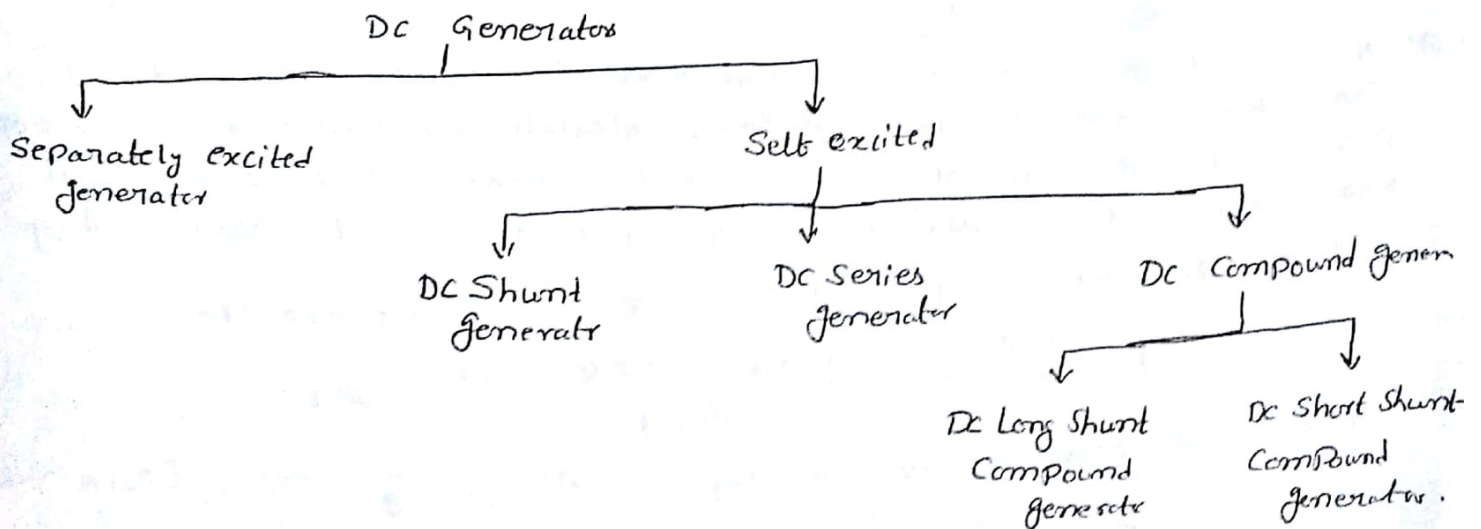 DC Generators
Separately excited
generator
Self excited
DC Shunt
generatr
DC Series
generator
DC Compound gener
DC Long Shunt
Compound
generatr
DC Short Shunt
Compound
generator.